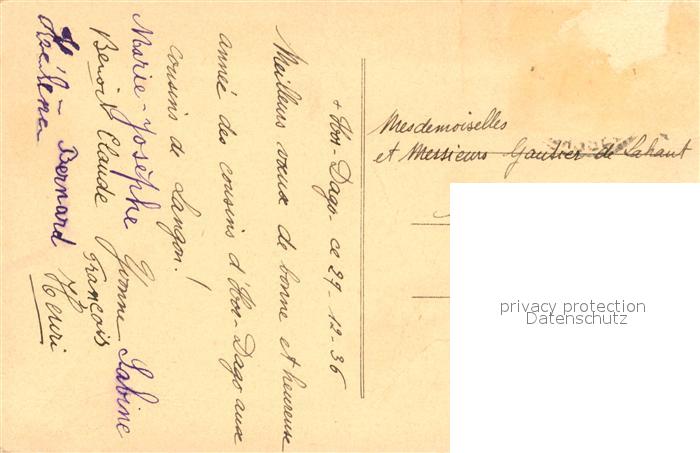 + Hon-Dago ce 29-12-36
Meilleurs vœux de bonne et heureuse
année des cousins d'Hon-Dago aux
cousins de Langon!
Marie-Josephe Yvonne Sabine
Benoit Claude François
Hélène Bernard Henri
Mesdemoiselles
et Messieurs Gautier de Lahaut
privacy protection
Datenschutz